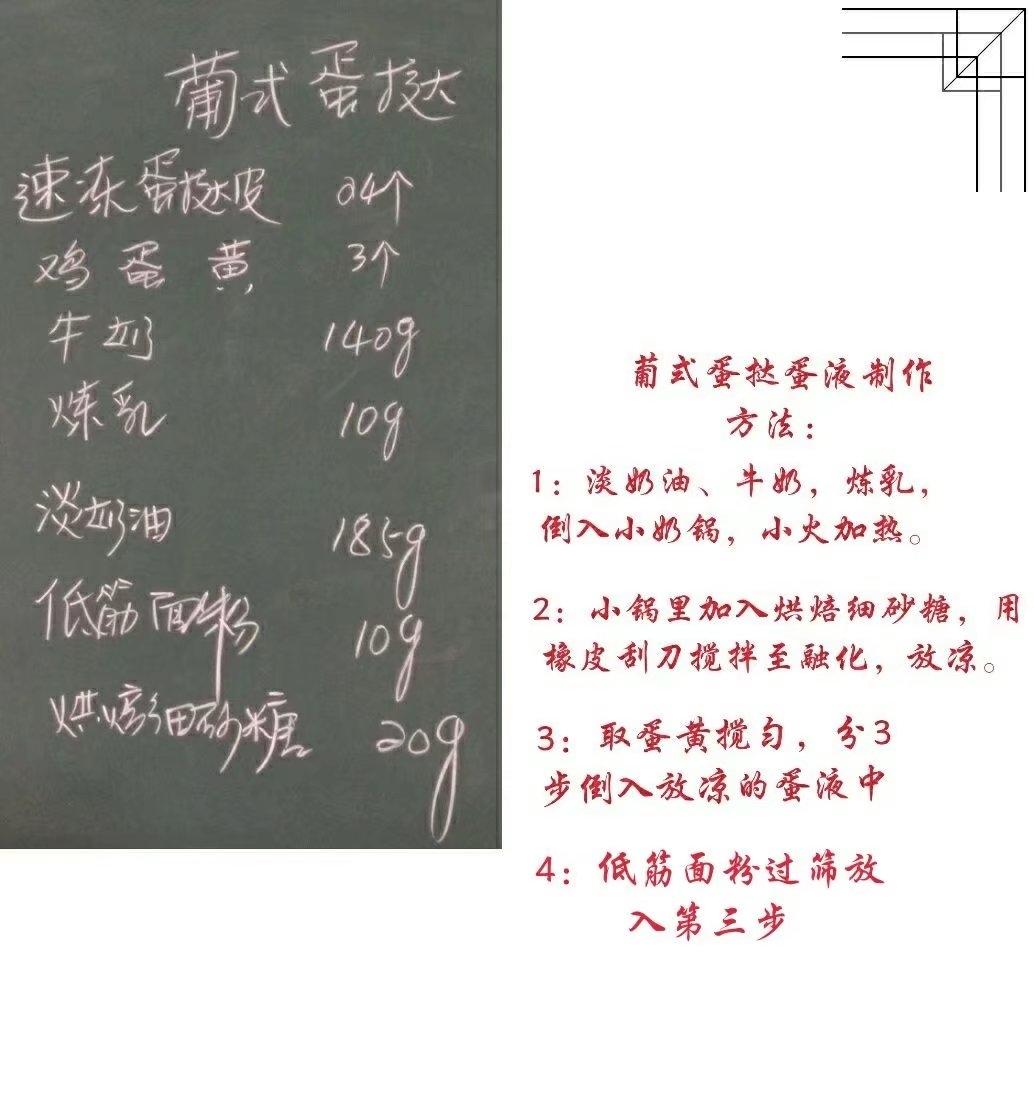 葡式蛋挞
速冻蛋挞皮 24个
鸡蛋黄 3个
牛奶 140g
炼乳 10g
淡奶油 185g
低筋面粉 10g
烘焙细砂糖 20g
葡式蛋挞蛋液制作
方法：
1：淡奶油、牛奶，炼乳，
倒入小奶锅，小火加热。
2：小锅里加入烘焙细砂糖，用
橡皮刮刀搅拌至融化，放凉。
3：取蛋黄搅匀，分3
步倒入放凉的蛋液中
4：低筋面粉过筛放
入第三步